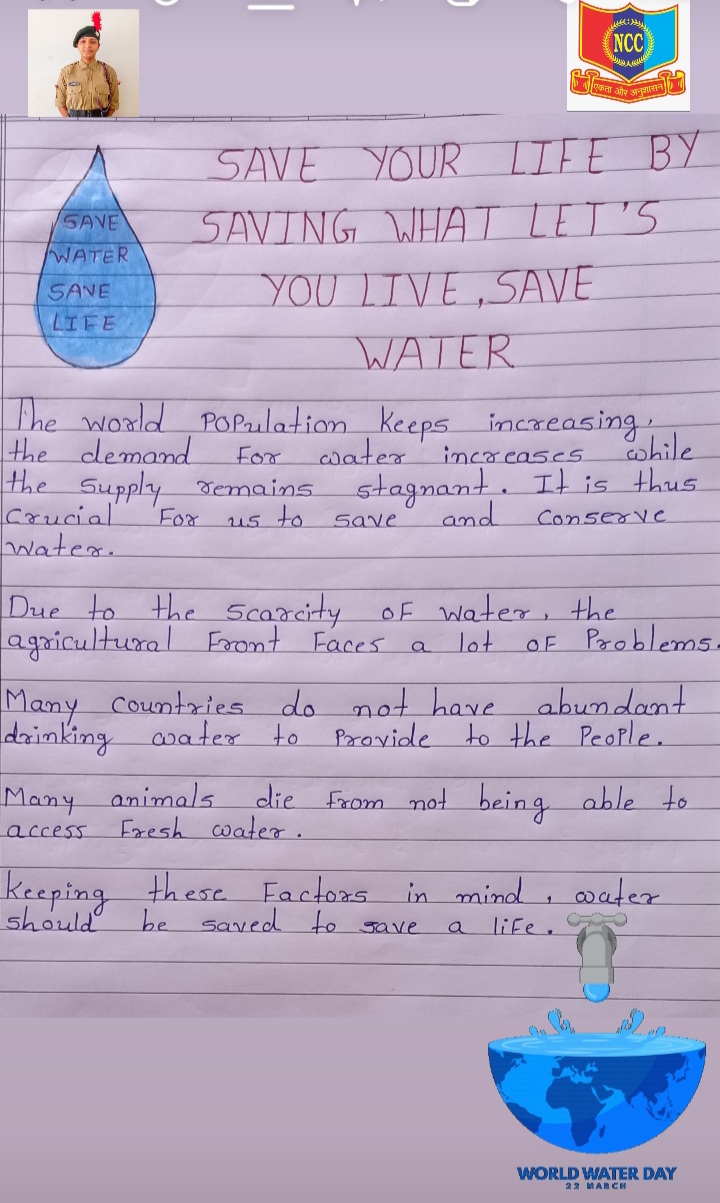 NCC
एकता और अनुशासन
SAVE YOUR LIFE BY
SAVING WHAT LET'S
YOU LIVE, SAVE
WATER
SAVE
WATER
SAVE
LIFE
The world population keeps increasing,
the demand for water increases while
the supply remains stagnant. It is thus
crucial for us to save and conserve
water.
Due to the scarcity of water, the
agricultural front faces a lot of problems.
Many countries do not have abundant
drinking water to provide to the people.
Many animals die from not being able to
access fresh water.
Keeping these factors in mind, water
should be saved to save a life.
WORLD WATER DAY
22 MARCH